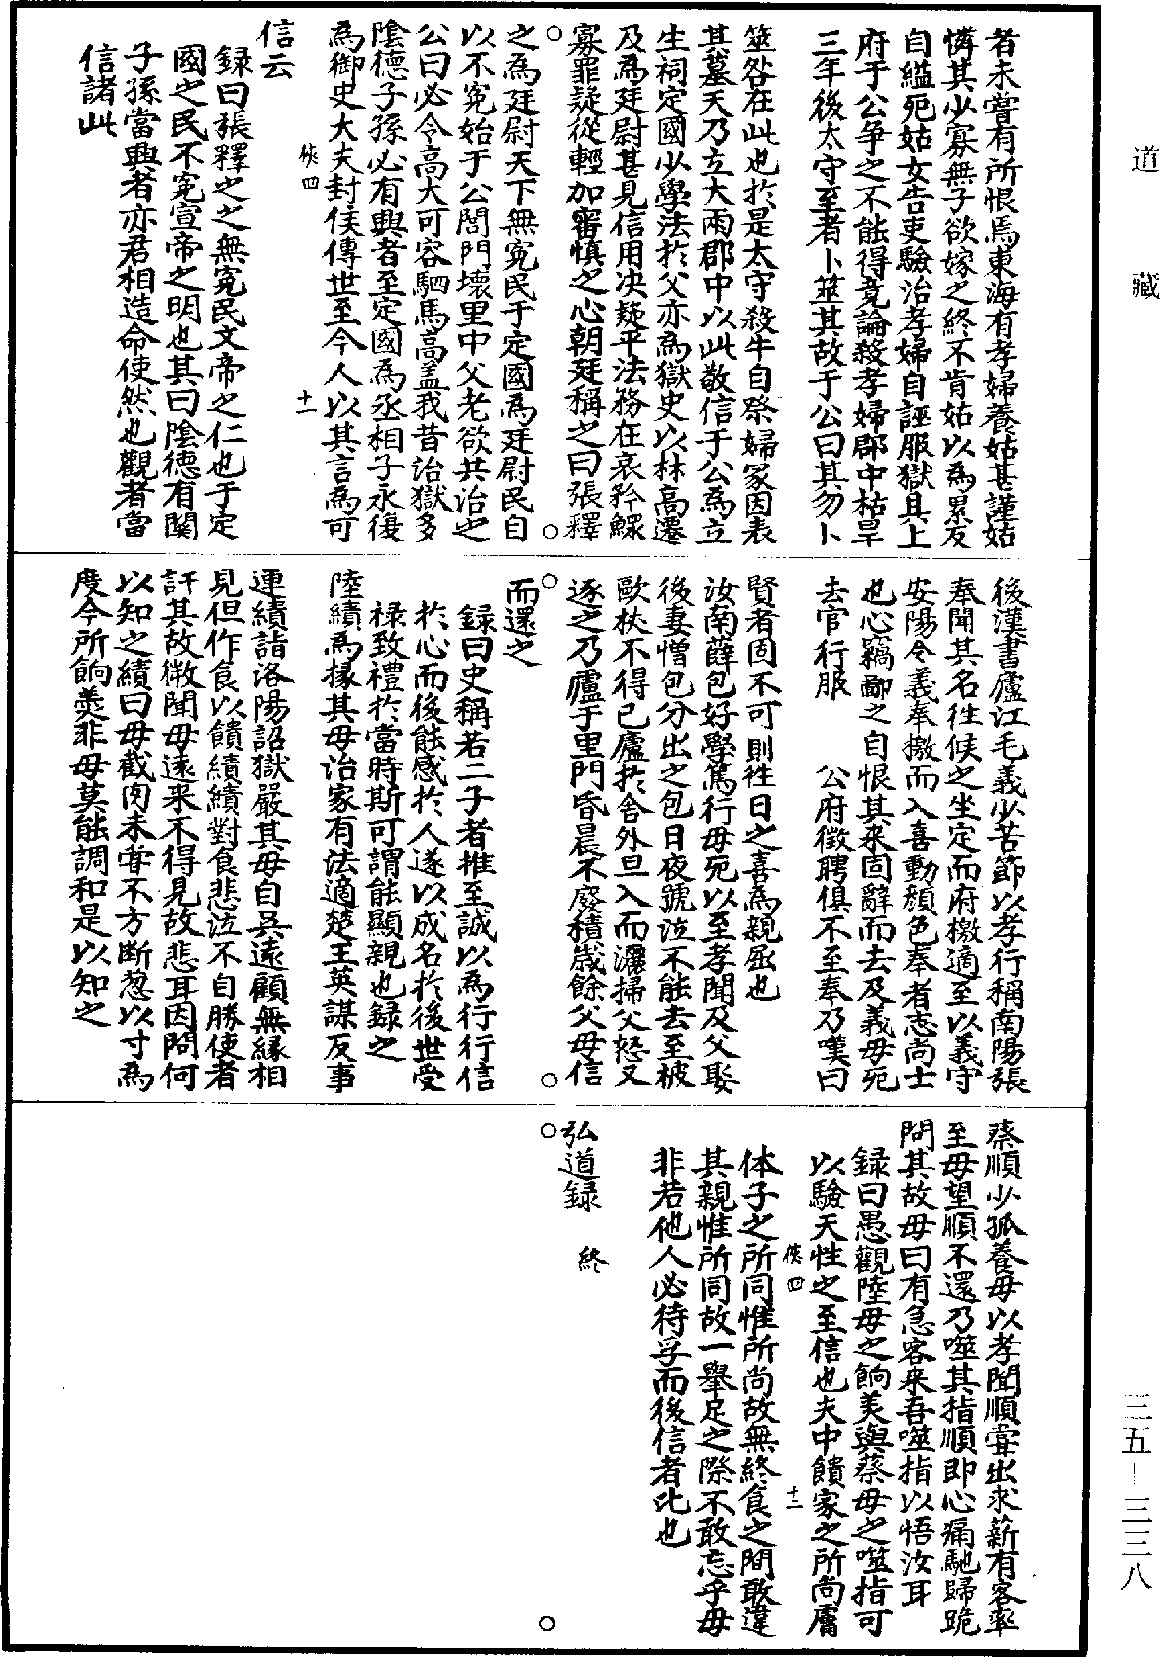 道藏
者未嘗有所恨焉東海有孝婦養姑甚謹姑
憐其少寡無子欲嫁之終不肯姑以為累友
自縊死姑女告吏驗治孝婦自誣服獄具上
府于公爭之不能得竟論殺孝婦郡中枯旱
三年後太守至者卜筮其故于公曰其勿卜
筮咎在此也於是太守殺牛自祭婦冢因表
其墓天乃立大雨郡中以此敬信于公為立
生祠定國少學法於父亦為獄史以林高遷
及為廷尉甚見信用决疑平法務在哀矜鰥
寡罪疑從輕加審慎之心朝廷稱之曰張釋
之為廷尉天下無冤民于定國為廷尉民自
以不冤始于公閭門壞里中父老欲共治之
公曰必令高大可容駟馬高盖我昔治獄多
陰德子孫必有興者至定國為丞相子永復
為御史大夫封侯傳世至今人以其言為可
俠四 十一
信云
録曰張釋之之無冤民文帝之仁也于定
國之民不冤宣帝之明也其曰陰德有關
子孫當興者亦君相造命使然也觀者當
信諸此
後漢書廬江毛義少苦節以孝行稱南陽張
奉聞其名往候之坐定而府檄適至以義守
安陽令義奉檄而入喜動顏色奉者志尚士
也心竊鄙之自恨其來固辭而去及義毋死
去官行服 公府徵聘俱不至奉乃嘆曰
賢者固不可則往日之喜為親屈也
汝南薛包好學篤行毋死以至孝聞及父娶
後妻憎包分出之包日夜號泣不能去至被
歐杖不得已廬於舍外旦入而灑掃父怒又
逐之乃廬于里門昏晨不廢積歲餘父毋信
而還之
録曰史稱若二子者推至誠以為行行信
於心而後能感於人遂以成名於後世受
禄致禮於當時斯可謂能顯親也録之
陸續為掾其毋治家有法適楚王英謀反事
連續詣洛陽詔獄嚴其毋自吳遠顧無緣相
見但作食以饋續續對食悲泣不自勝使者
訝其故微聞毋遠來不得見故悲耳因問何
以知之續曰毋截肉未甞不方斷葱以寸為
度今所餉羮非毋莫能調和是以知之
蔡順少孤養毋以孝聞順甞出求薪有客率
至毋望順不還乃噬其指順即心痛馳歸跪
問其故毋曰有急客來吾噬指以悟汝耳
録曰愚觀陸毋之餉美與蔡毋之噬指可
以驗天性之至信也夫中饋家之所尚膚
俠四 十二
体子之所同惟所尚故無終食之間敢違
其親惟所同故一舉足之際不敢忘乎毋
非若他人必待孚而後信者比也
弘道録 終
三五—三三八